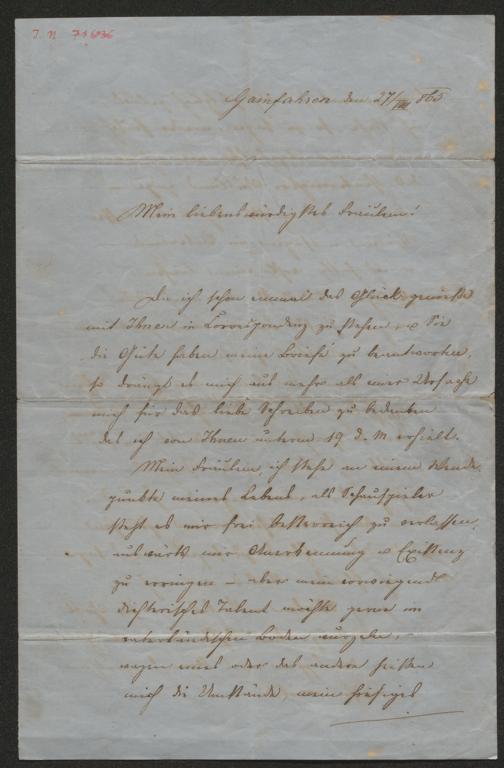 J. N. 71636
Gainfahren den 27/III 865
Mein liebenswürdigstes Fräulein!
Da ich schon einmal das Glück genieße
mit Ihnen in Correspondenz zu stehen, u Sie
die Güte haben meine Briefe zu beantworten,
so drängt es mich aus mehr als einer Ursache
mich für das liebe Schreiben zu bedanken
das ich von Ihnen unterm 19 d. M. erhielt.
Mein Fräulein, ich stehe an einem Wende
punkte meines Lebens, als Schauspieler
steht es mir frei Oesterreich zu verlassen,
auswärts mir Anerkennung u Existenz
zu erringen – aber mein vorwiegend
dichterisches Talent möchte gerne im
vaterländischen Boden wurzeln,
eines oder das andere heißen
mich die Umstände, mein hiesiges